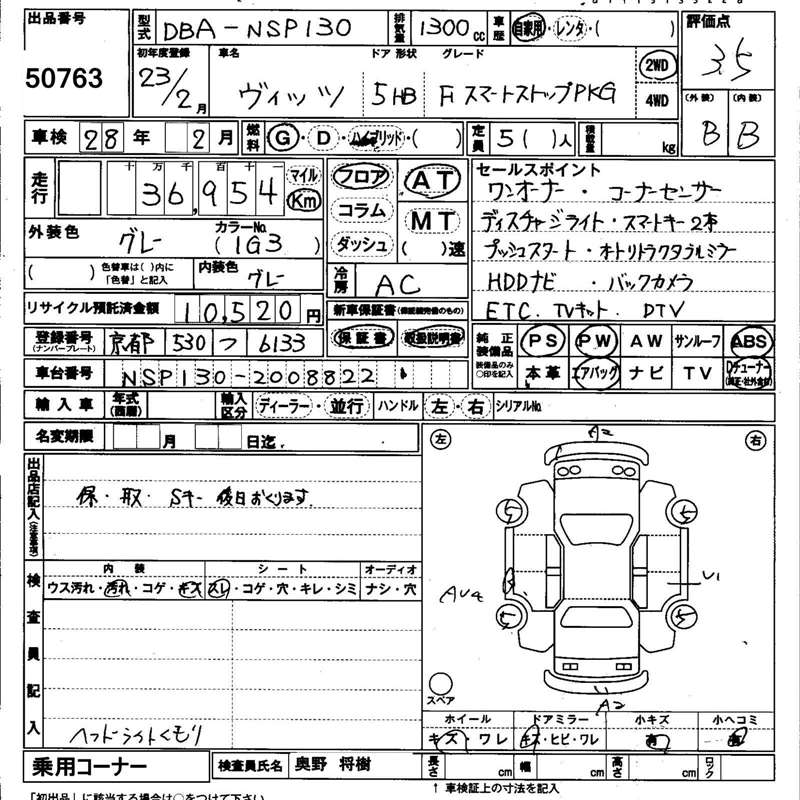 出品番号 50763
型式 DBA-NSP130 排気量 1300cc 車歴 自家用・レンタ・( )
評価点 3.5
初年度登録 車名 ドア 形状 グレード
23/2月 ヴィッツ 5HB F スマートストップPKG 2WD 4WD
(外装) (内装)
B B
車検 28年 2月 燃料 G・D・ハイブリッド・( ) 定員 5( )人 積載量 kg
走行 十 万 千 百 十 一
36,954 マイル Km
フロア コラム ダッシュ
AT MT ( )速
セールスポイント
ワンオーナー・コーナーセンサー
ディスチャージライト・スマートキー2本
プッシュスタート・オートリトラクタブルミラー
HDDナビ・バックカメラ
ETC.TVキット.DTV
外装色 グレー カラーNo. (1G3)
( ) 色替車は( )内に「色替」と記入 内装色 グレー
冷房 AC
リサイクル預託済金額 10,520円
新車保証書(保証継続発書のもの)
登録番号(ナンバープレート) 京都 530 つ 6133
保証書 取扱説明書
純正装備品 装備品のみ○印を記入
PS PW AW サンルーフ ABS
本革 エアバッグ ナビ TV Dチューナー(純正・社外含む)
車台番号 NSP130-2008822
輸入車 年式(西暦) 輸入区分 ディーラー・並行 ハンドル 左・右 シリアルNo.
名変期限 月 日迄.
出品店記入(注意事項)
保・取・Sキー 後日おくります.
左 右
A2
5 5
AU4 U1
5 5
A2
スペア
検査員記入
内装 シート オーディオ
ウス汚れ・汚れ・コゲ・キズ スレ・コゲ・穴・キレ・シミ ナシ・穴
ヘッドライトくもり
ホイール ドアミラー 小キズ 小ヘコミ
キズ・ワレ キズ・ヒビ・ワレ 有 有
乗用コーナー 検査員氏名 奥野 将樹 長さ cm 幅 cm 高さ cm ロック
↑車検証上の寸法を記入
「初出品」に該当する場合は○をつけて下さい